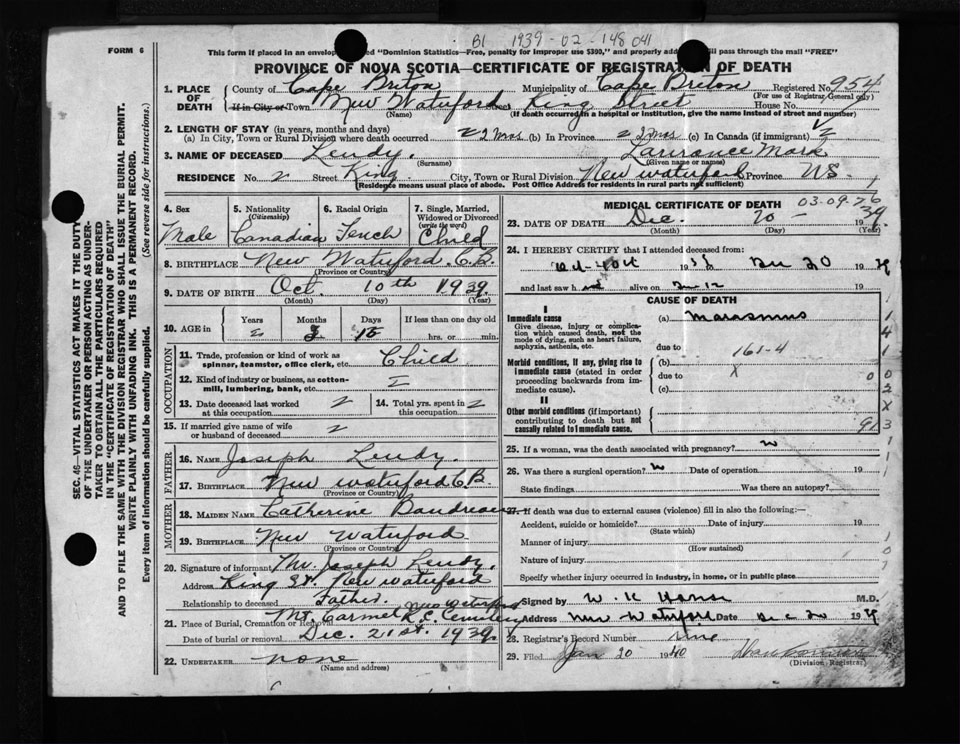 B1 1939-02-148041
FORM 6
This form if placed in an envelop ed "Dominion Statistics—Free, penalty for improper use $300," and properly add ill pass through the mail "FREE"
PROVINCE OF NOVA SCOTIA—CERTIFICATE OF REGISTRATION OF DEATH
1. PLACE OF DEATH County of Cape Briton Municipality of Cape Briton Registered No. 954
(For use of Registrar General only)
If in City or Town New Waterford King Street House No.
(Name) (If death occurred in a hospital or institution, give the name instead of street and number)
2. LENGTH OF STAY (in years, months and days)
(a) In City, Town or Rural Division where death occurred 2 mos (b) In Province 2 mos (c) In Canada (if immigrant)
3. NAME OF DECEASED Lendy. Laurance Mark
(Surname) (Given name or names)
RESIDENCE No. 2 Street King City, Town or Rural Division New Waterford Province NS.
(Residence means usual place of abode. Post Office Address for residents in rural parts not sufficient)
4. Sex Male
5. Nationality (Citizenship) Canadian
6. Racial Origin French
7. Single, Married, Widowed or Divorced (write the word) Child
8. BIRTHPLACE New Waterford. C.B.
(Province or Country)
9. DATE OF BIRTH Oct. 10th 1939.
(Month) (Day) (Year)
10. AGE in Years Months Days If less than one day
hrs. or min.
OCCUPATION
11. Trade, profession or kind of work as spinner, teamster, office clerk, etc. Child
12. Kind of industry or business, as cotton-mill, lumbering, bank, etc.
13. Date deceased last worked at this occupation
14. Total yrs. spent in this occupation
15. If married give name of wife or husband of deceased
FATHER
16. NAME Joseph Lendy.
17. BIRTHPLACE New Waterford C.B.
(Province or Country)
MOTHER
18. MAIDEN NAME Catherine Boudreau
19. BIRTHPLACE New Waterford
(Province or Country)
20. Signature of informant Mr. Joseph Lendy.
Address King St. New Waterford
Relationship to deceased Father.
21. Place of Burial, Cremation or Removal Mt. Carmel R.C. Cemetery New Waterford
Date of burial or removal Dec. 21st. 1939.
22. UNDERTAKER none
(Name and address)
MEDICAL CERTIFICATE OF DEATH 03-09-76
23. DATE OF DEATH Dec. 20 1939
(Month) (Day) (Year)
24. I HEREBY CERTIFY that I attended deceased from:
Dec 20 19
and last saw h alive on Dec 12 19
CAUSE OF DEATH
I
Immediate cause (a) Marasmus
Give disease, injury or complication which caused death, not the mode of dying, such as heart failure, asphyxia, asthenia, etc.
due to
Morbid conditions, if any, giving rise to immediate cause (stated in order proceeding backwards from immediate cause).
(b) 161-4
due to X
(c)
II
Other morbid conditions (if important) contributing to death but not causally related to immediate cause.
25. If a woman, was the death associated with pregnancy?
26. Was there a surgical operation? Date of operation 19
State findings Was there an autopsy?
27. If death was due to external causes (violence) fill in also the following:—
Accident, suicide or homicide? Date of injury 19
(State which)
Manner of injury
(How sustained)
Nature of injury
Specify whether injury occurred in industry, in home, or in public place
Signed by W. K M.D.
Address New Waterford Dec 20 19
28. Registrar's Record Number
29. Filed Jan 20 1940
(Division Registrar)
SEC. 46—VITAL STATISTICS ACT MAKES IT THE DUTY
OF THE UNDERTAKER OR PERSON ACTING AS UNDER-
TAKER TO OBTAIN ALL THE PARTICULARS REQUIRED
IN THE "CERTIFICATE OF REGISTRATION OF DEATH"
AND TO FILE THE SAME WITH THE DIVISION REGISTRAR WHO SHALL ISSUE THE BURIAL PERMIT.
WRITE PLAINLY WITH UNFADING INK. THIS IS A PERMANENT RECORD.
Every item of information should be carefully supplied. (See reverse side for instructions.)